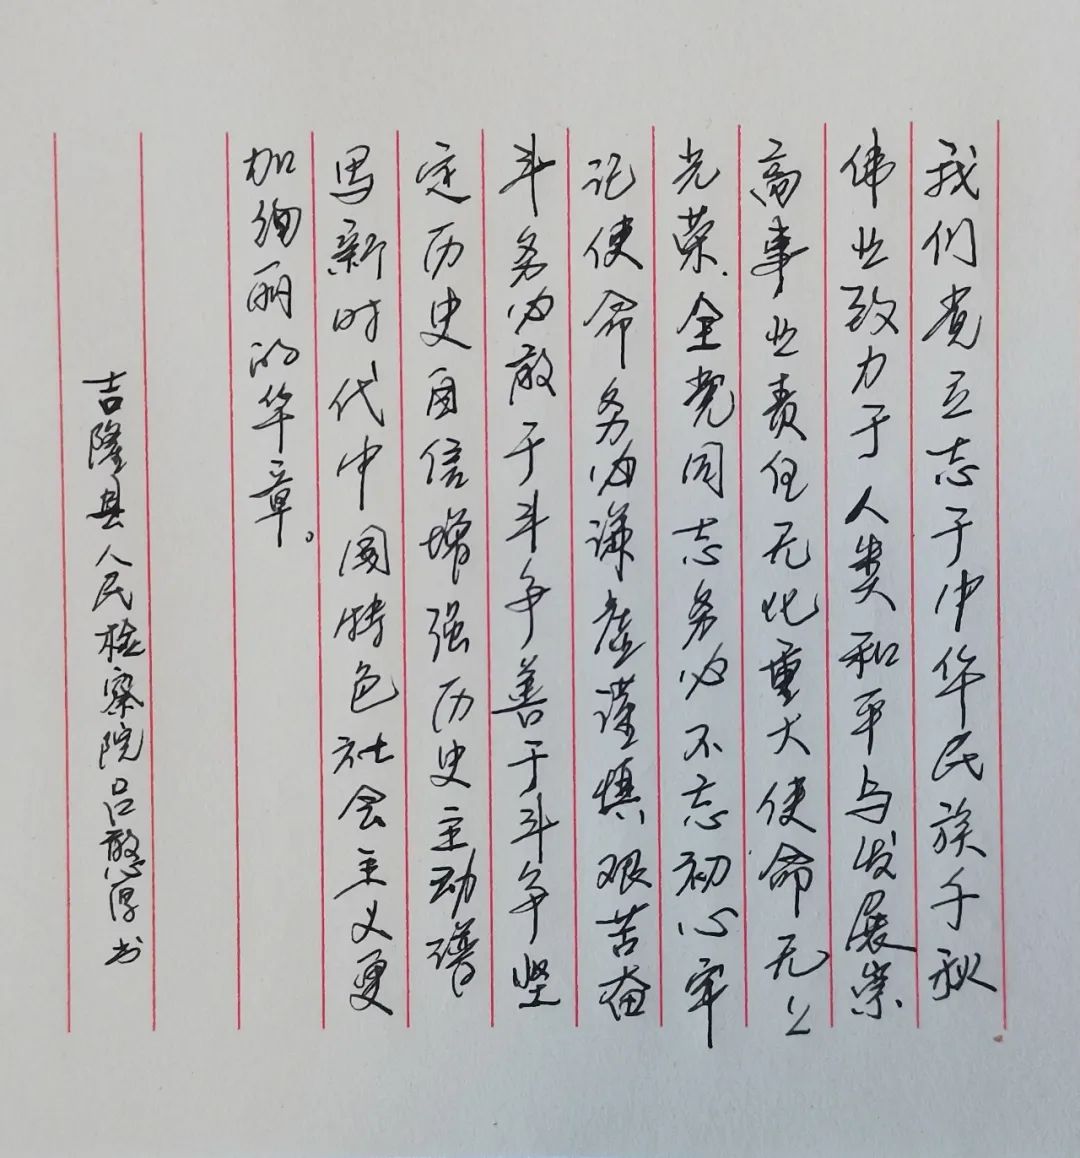 我们党立志于中华民族千秋
伟业致力于人类和平与发展崇
高事业责任无比重大使命无上
光荣全党同志务必不忘初心牢
记使命务必谦虚谨慎艰苦奋
斗务必敢于斗争善于斗争坚
定历史自信增强历史主动谱
写新时代中国特色社会主义更
加绚丽的华章。
吉隆县人民检察院吕憨厚书